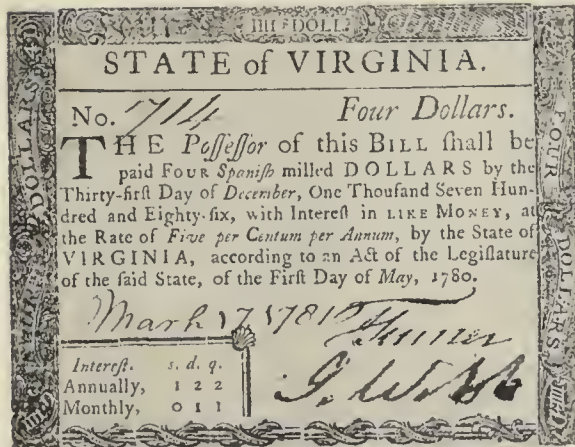 IIII DOLL.
STATE of VIRGINIA.
No. 1714 Four Dollars.
THE Poſſeſſor of this BILL ſhall be
paid FOUR Spaniſh milled DOLLARS by the
Thirty-firſt Day of December, One Thouſand Seven Hun-
dred and Eighty-ſix, with Intereſt in LIKE MONEY, at
the Rate of Five per Centum per Annum, by the State of
VIRGINIA, according to an Act of the Legiſlature
of the ſaid State, of the Firſt Day of May, 1780.
March 17 1781
Turner
J. Webb
Intereſt. s. d. q.
Annually, 1 2 2
Monthly, 0 1 1
FOUR DOLLARS
FOUR DOLLARS